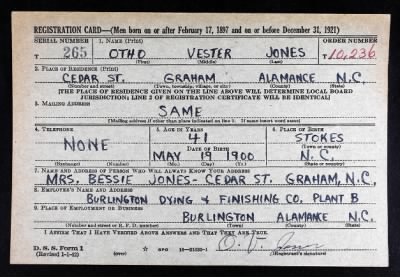 REGISTRATION CARD—(Men born on or after February 17, 1897 and on or before December 31, 1921)
SERIAL NUMBER 1. NAME (Print) ORDER NUMBER
T 265 OTHO VESTER JONES T 10,236
(First) (Middle) (Last)
2. PLACE OF RESIDENCE (Print)
CEDAR ST. GRAHAM ALAMANCE N.C.
(Number and street) (Town, township, village, or city) (County) (State)
[THE PLACE OF RESIDENCE GIVEN ON THE LINE ABOVE WILL DETERMINE LOCAL BOARD
JURISDICTION; LINE 2 OF REGISTRATION CERTIFICATE WILL BE IDENTICAL]
3. MAILING ADDRESS
SAME
[Mailing address if other than place indicated on line 2. If same insert word same]
4. TELEPHONE 5. AGE IN YEARS 6. PLACE OF BIRTH
NONE 41 STOKES
DATE OF BIRTH (Town or county)
MAY 19 1900 N.C.
(Exchange) (Number) (Mo.) (Day) (Yr.) (State or country)
7. NAME AND ADDRESS OF PERSON WHO WILL ALWAYS KNOW YOUR ADDRESS
MRS. BESSIE JONES- CEDAR ST. GRAHAM, N.C.,
8. EMPLOYER'S NAME AND ADDRESS
BURLINGTON DYING & FINISHING CO. PLANT B
9. PLACE OF EMPLOYMENT OR BUSINESS
BURLINGTON ALAMANCE N.C.
(Number and street or R. F. D. number) (Town) (County) (State)
I AFFIRM THAT I HAVE VERIFIED ABOVE ANSWERS AND THAT THEY ARE TRUE.
D. S. S. Form 1 GPO
(Revised 1-1-42) (over) O. V. Jones
(Registrant's signature)